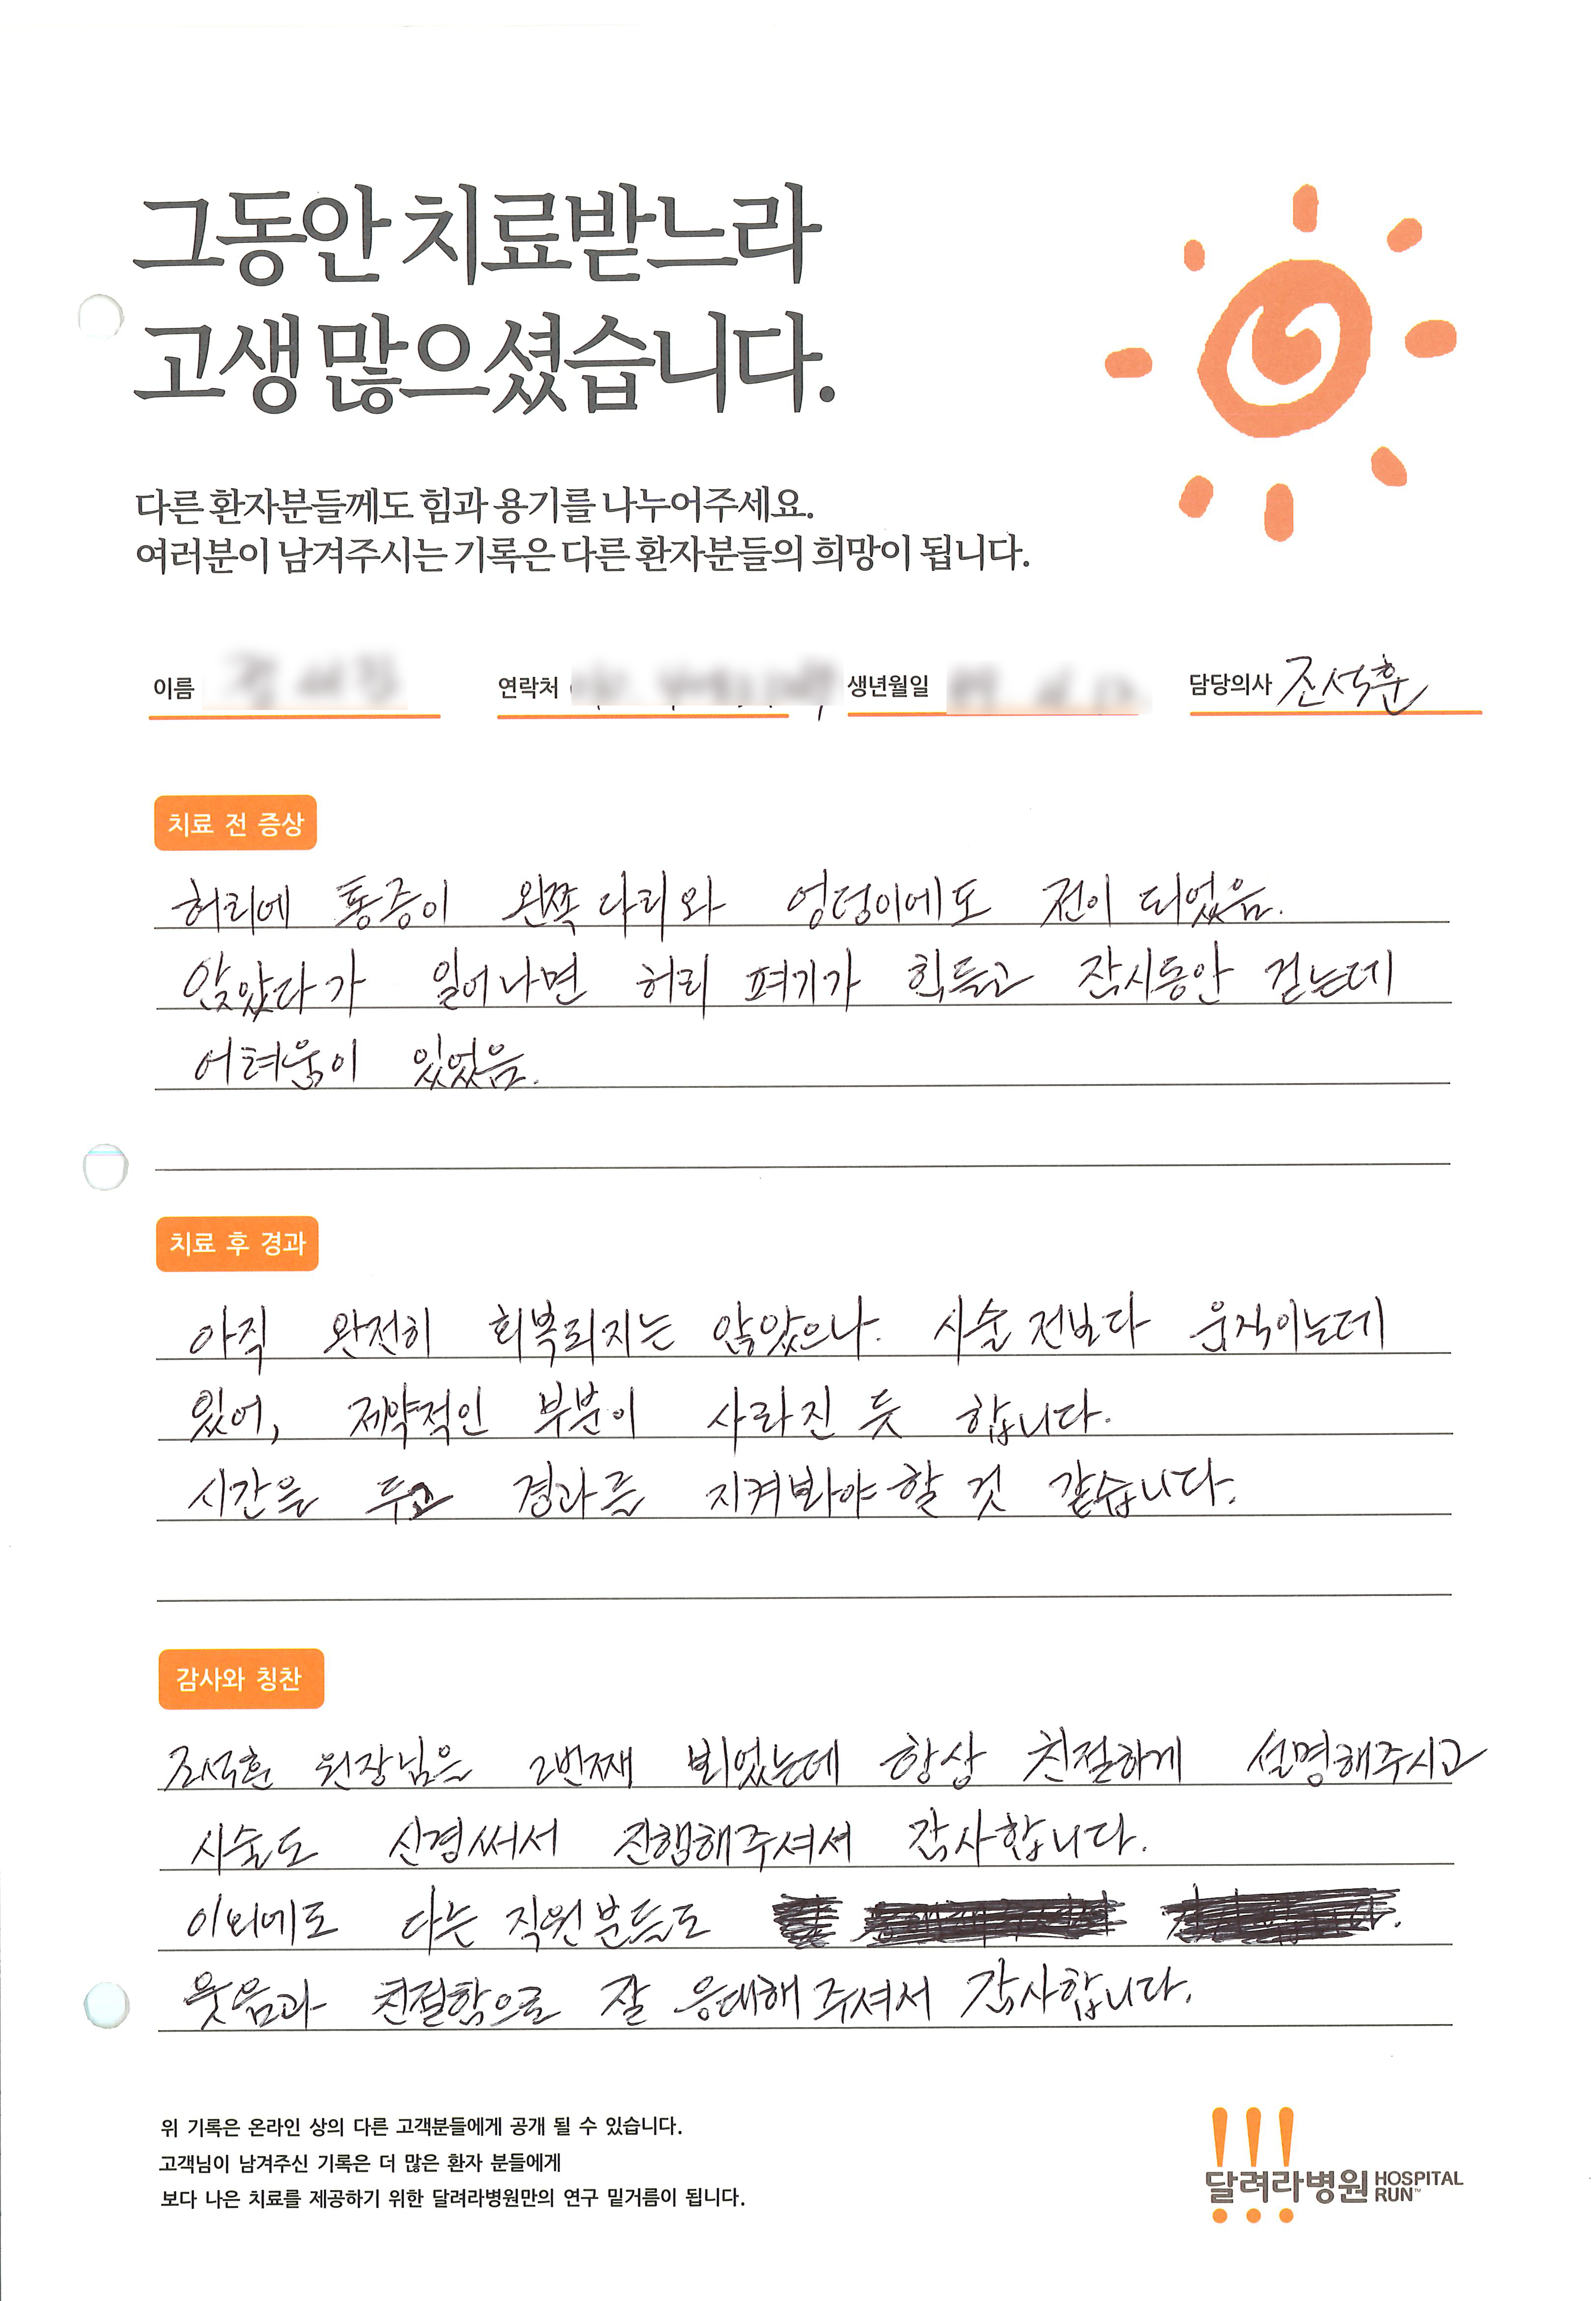 그동안 치료받느라
고생 많으셨습니다.
다른 환자분들께도 힘과 용기를 나누어주세요.
여러분이 남겨주시는 기록은 다른 환자분들의 희망이 됩니다.
이름 연락처 생년월일 담당의사 조석훈
치료 전 증상
허리에 통증이 왼쪽 다리와 엉덩이에도 전이 되었음.
앉았다가 일어나면 허리 펴기가 힘들고 잠시동안 걷는데
어려움이 있었음.
치료 후 경과
아직 완전히 회복되지는 않았으나. 시술 전보다 움직이는데
있어, 제약적인 부분이 사라진 듯 합니다.
시간을 두고 경과를 지켜봐야 할 것 같습니다.
감사와 칭찬
조석훈 원장님은 2번째 뵈었는데 항상 친절하게 설명해주시고
시술도 신경써서 진행해주셔서 감사합니다.
이외에도 다른 직원분들도
웃음과 친절함으로 잘 응대해 주셔서 감사합니다.
위 기록은 온라인 상의 다른 고객분들에게 공개 될 수 있습니다.
고객님이 남겨주신 기록은 더 많은 환자 분들에게
보다 나은 치료를 제공하기 위한 달려라병원만의 연구 밑거름이 됩니다.
달려라병원 HOSPITAL
RUN™